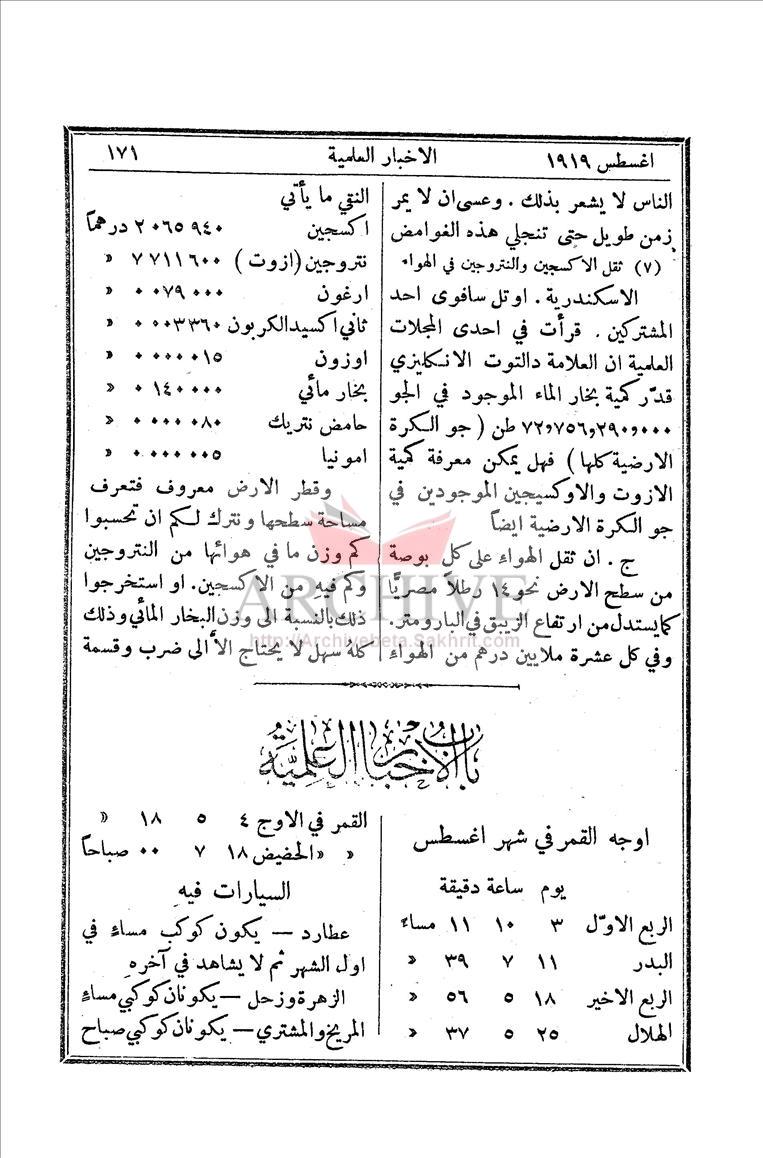 اغسطس ١٩١٩
الاخبار العلمية
١٧١
الناس لا يشعر بذلك . وعسى ان لا يمر
زمن طويل حتى تنجلي هذه الغوامض
(٧) ثقل الاكسجين والنتروجين في الهواء
الاسكندرية . اوتل سافوى احد
المشتركين . قرأت في احدى المجلات
العلمية ان العلامة دالتوت الانكليزي
قدّر كمية بخار الماء الموجود في الجو
٧٢,٧٥٦,٢٩٠,٠٠٠ طن ( جو الكرة
الارضية كلها ) فهل يمكن معرفة كمية
الازوت والاوكسيجين الموجودين في
جو الكرة الارضية ايضاً
ج . ان ثقل الهواء على كل بوصة
من سطح الارض نحو ١٤ رطلاً مصريًّا
كما يستدل من ارتفاع الزيبق في البارومتر.
وفي كل عشرة ملايين درهم من الهواء
النقي ما يأتي
اكسجين ٢٠٦٥٩٤٠ درهماً
نتروجين (ازوت) ٧٧١١٦٠٠ »
ارغون ٠٠٧٩٠٠٠ »
ثاني اكسيد الكربون ٠٠٠٣٣٦٠ »
اوزون ٠٠٠٠٠١٥ »
بخار مائي ٠١٤٠٠٠٠ »
حامض نتريك ٠٠٠٠٠٨٠ »
امونيا ٠٠٠٠٠٠٥ »
وقطر الارض معروف فتعرف
مساحة سطحها ونترك لكم ان تحسبوا
كم وزن ما في هوائها من النتروجين
وكم فيهِ من الاكسجين. او استخرجوا
ذلك بالنسبة الى وزن البخار المائي وذلك
كلهُ سهل لا يحتاج الاَّ الى ضرب وقسمة
ARCHIVE
http://Archivebeta.Sakhrit.com
باب الاخبار العلمية
اوجه القمر في شهر اغسطس
يوم ساعة دقيقة
الربع الاوّل ٣ ١٠ ١١ مساءً
البدر ١١ ٧ ٣٩ »
الربع الاخير ١٨ ٥ ٥٦ »
الهلال ٢٥ ٥ ٣٧ »
القمر في الاوج ٤ ٥ ١٨ »
» » الحضيض ١٨ ٧ ٠٠ صباحاً
السيارات فيهِ
عطارد — يكون كوكب مساءٍ في
اول الشهر ثم لا يشاهد في آخرهِ
الزهرة وزحل — يكونان كوكبي مساءٍ
المريخ والمشتري — يكونان كوكبي صباح